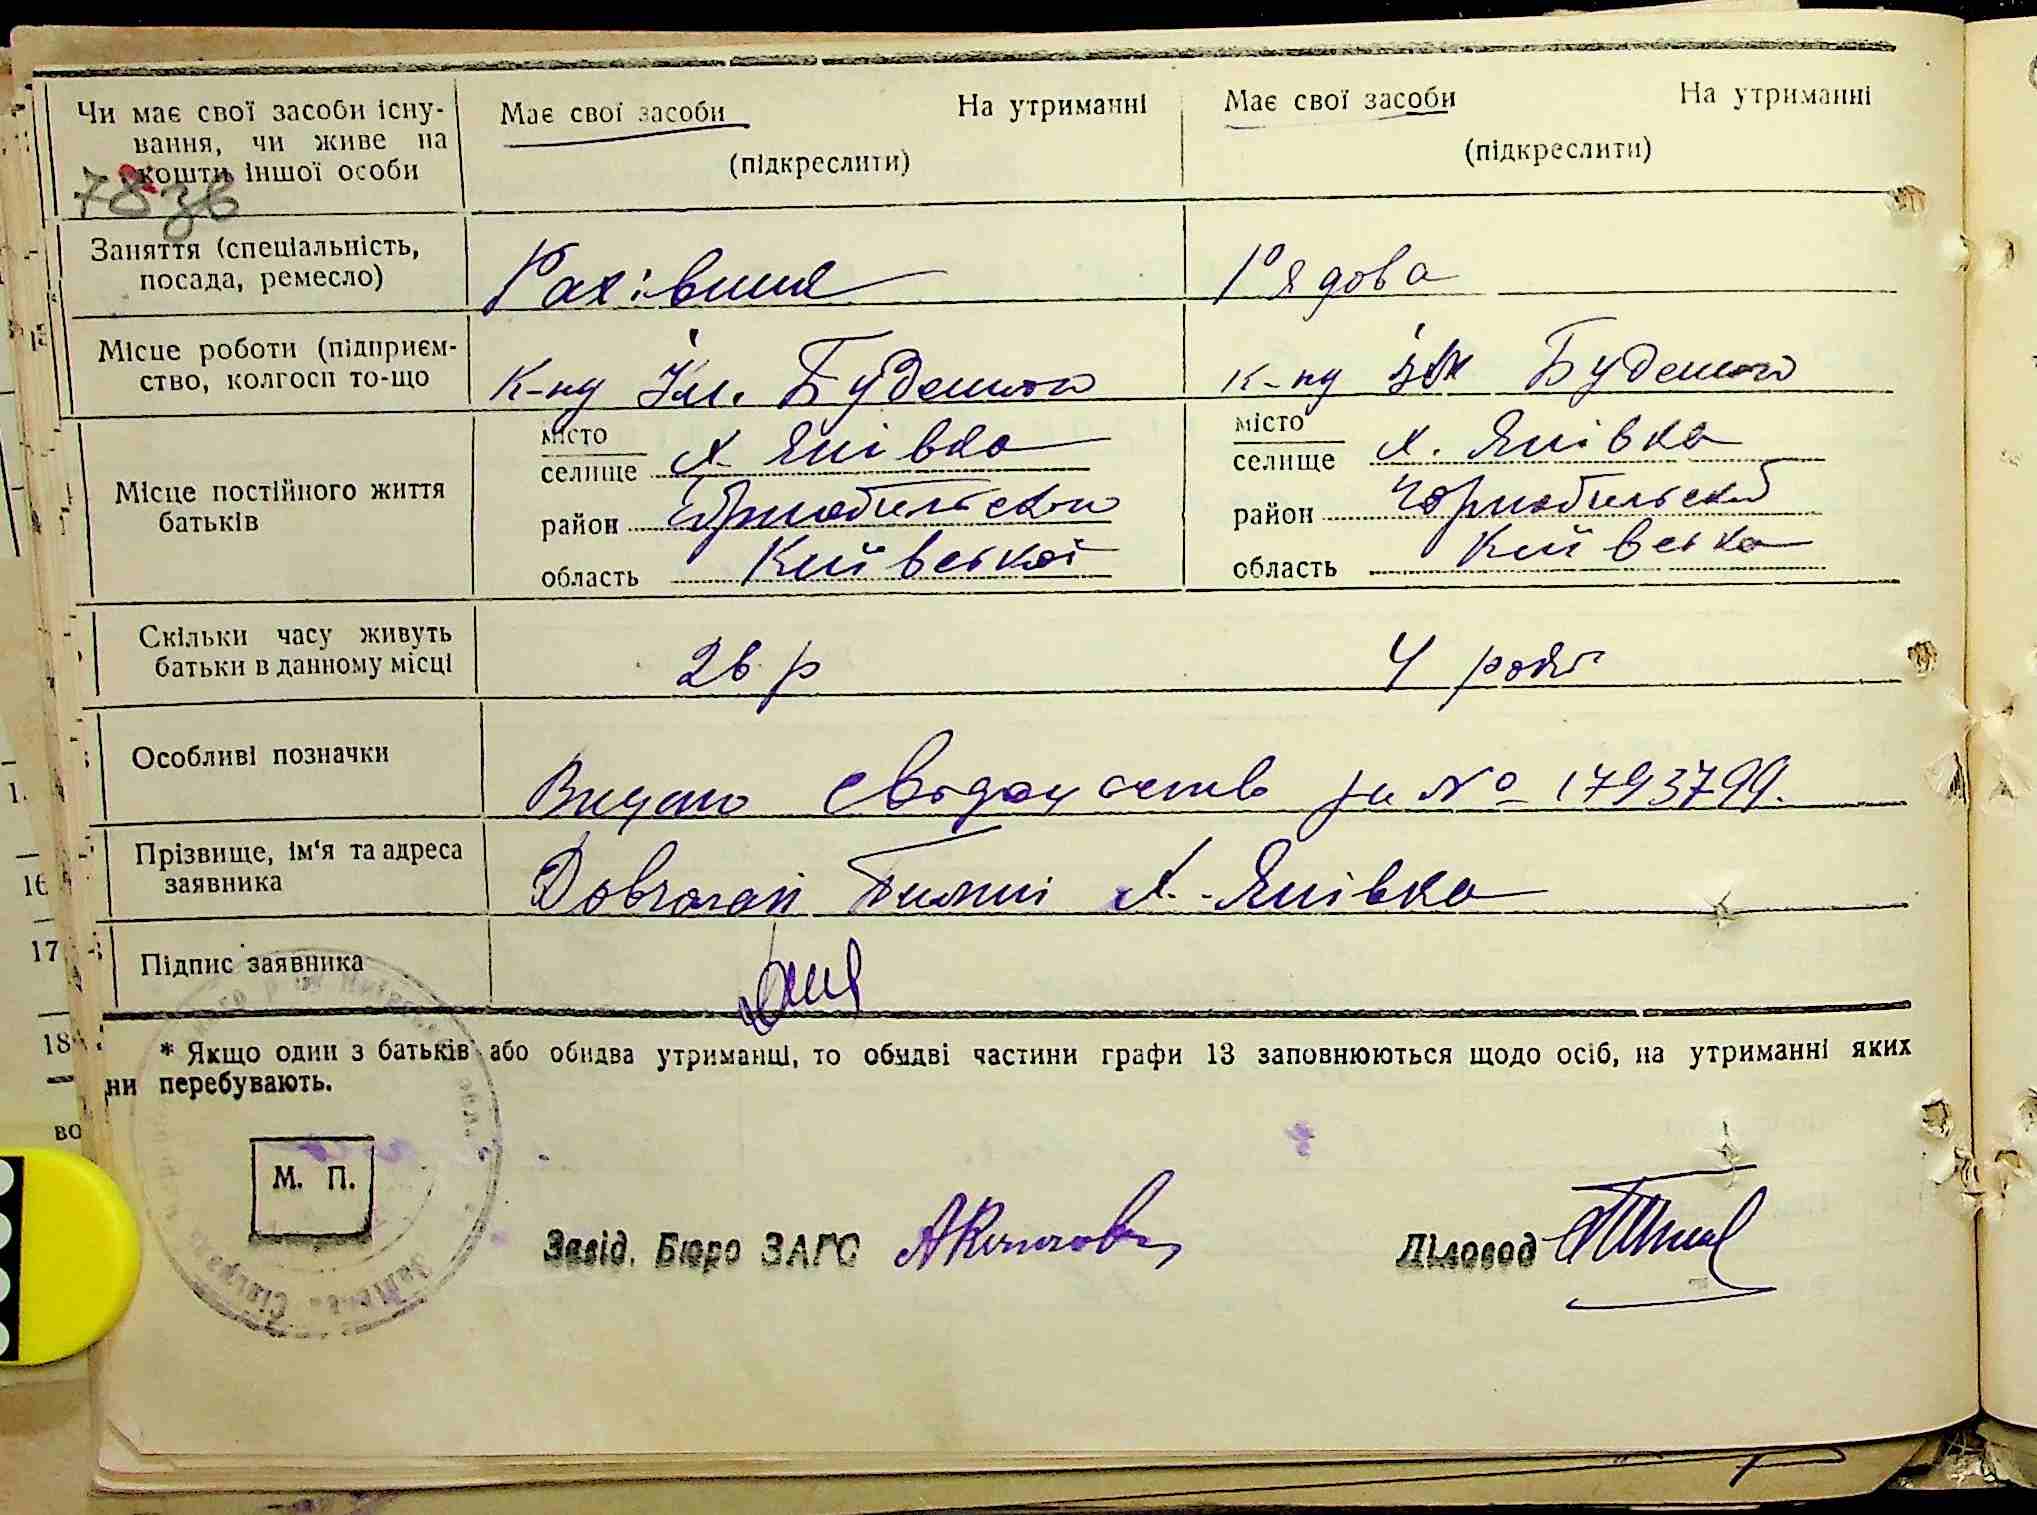 Чи має свої засоби існу-
вання, чи живе на
кошти іншої особи
78зв
Має свої засоби На утриманні
(підкреслити)
Має свої засоби На утриманні
(підкреслити)
Заняття (спеціальність,
посада, ремесло)
Рахівник
Рядова
Місце роботи (підприєм-
ство, колгосп то-що
К-пу Ім. Будьоного
к-пу ім Будьоного
Місце постійного життя
батьків
місто
селище х. Янівка
район Чорнобильского
область Київської
місто
селище х. Янівка
район Чорнобильский
область Київська
Скільки часу живуть
батьки в данному місці
26 р
4 роки
Особливі позначки
Видано свидоцтво за № 1793799.
Прізвище, ім‘я та адреса
заявника
Довгаган х. Янівка
Підпис заявника
* Якщо один з батьків або обидва утриманці, то обидві частини графи 13 заповнюються щодо осіб, на утриманні яких
ни перебувають.
М. П.
Завід. Бюро ЗАГС
Діловод
16
17
18
во